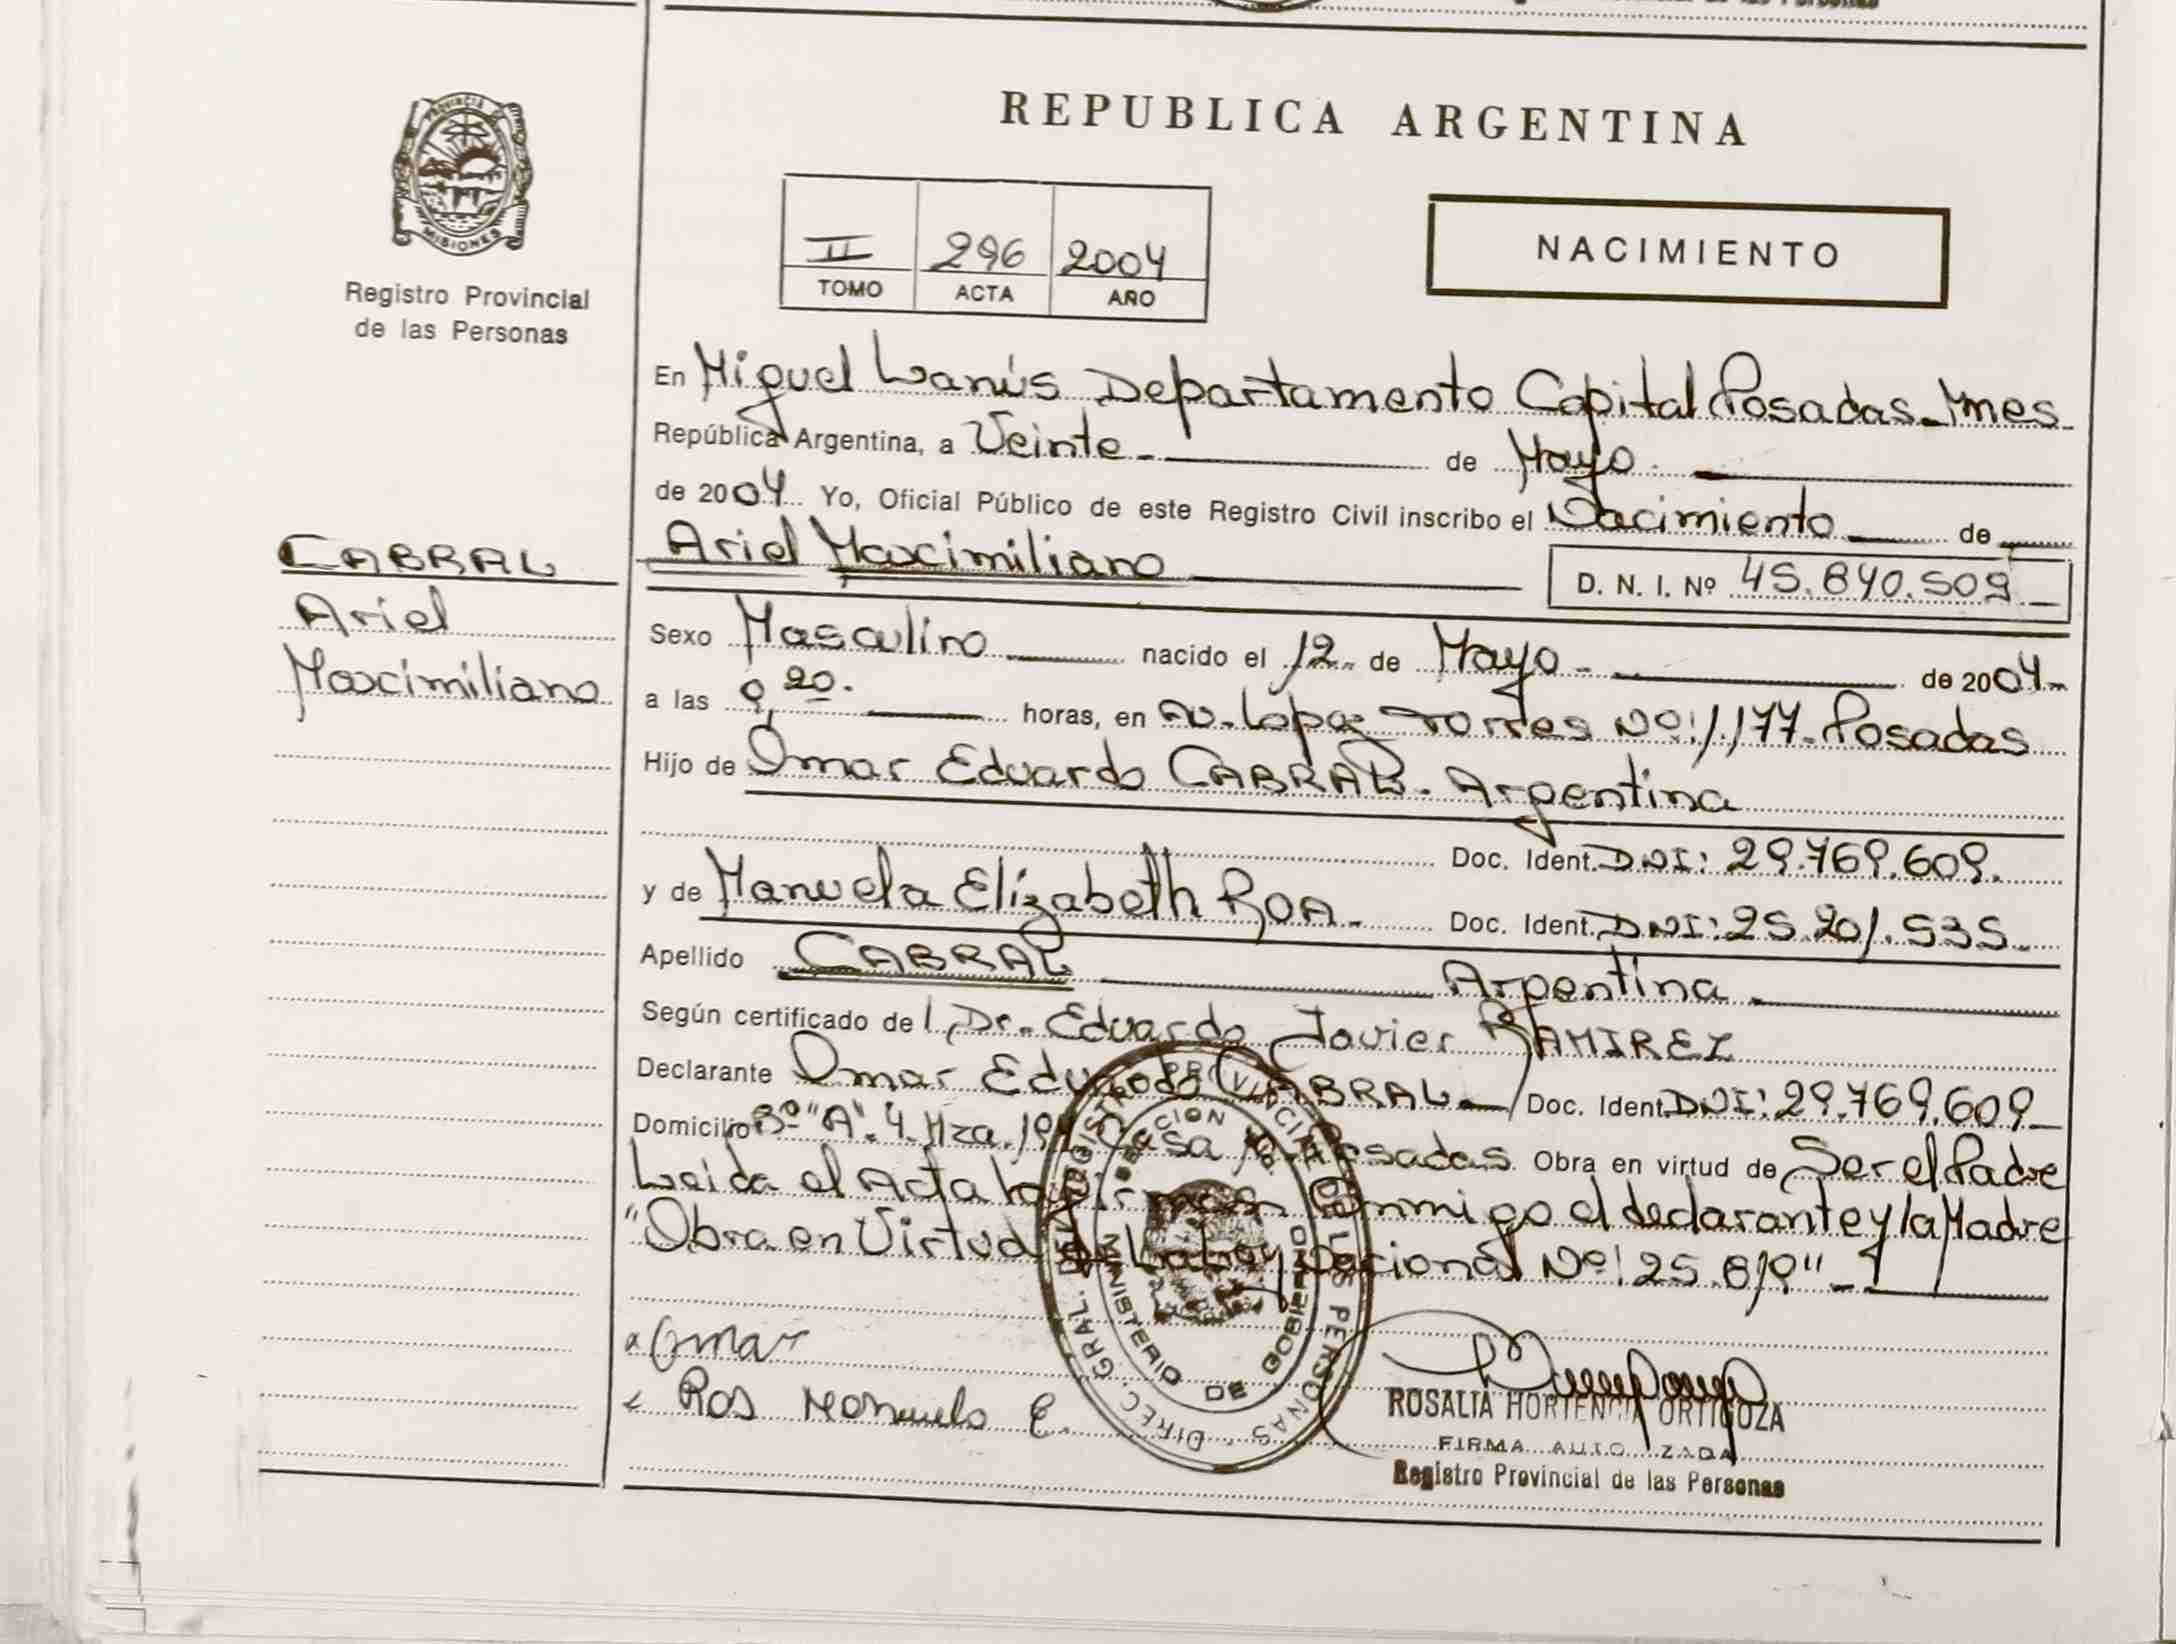 REPUBLICA ARGENTINA
PROVINCIA
MISIONES
Registro Provincial
de las Personas
II 296 2004
TOMO ACTA AÑO
NACIMIENTO
En Miguel Lanús Departamento Capital Posadas - Mnes.
República Argentina, a Veinte - de Mayo.
de 2004 Yo, Oficial Público de este Registro Civil inscribo el Nacimiento de
CABRAL
Ariel
Maximiliano
Ariel Maximiliano
D. N. I. Nº 45.840.509
Sexo Masculino nacido el 12 de Mayo - de 2004
a las 9,20. horas, en Av. Lopez Torres Nº: 1.177 - Posadas
Hijo de Omar Eduardo CABRAL. Argentina
Doc. Ident. DNI: 29.769.609.
y de Manuela Elizabeth ROA. Doc. Ident. DNI: 25.201.535
Apellido CABRAL Argentina
Según certificado del Dr. Eduardo Javier RAMIREZ
Declarante Omar Eduardo CABRAL Doc. Ident. DNI: 29.769.609
Domicilio Bº "A". 4. Mza. Casa Posadas Obra en virtud de Ser el Padre
Leida el Acta la firman Conmigo el declarante y la Madre
"Obra en Virtud de la Ley Nacional Nº: 25.819"
Omar
Roa Manuela E.
DIREC. GRAL. REGISTRO PROVINCIAL DE LAS PERSONAS
MINISTERIO DE GOBIERNO
ROSALIA HORTENCIA ORTIGOZA
FIRMA AUTO ZADA
Registro Provincial de las Personas